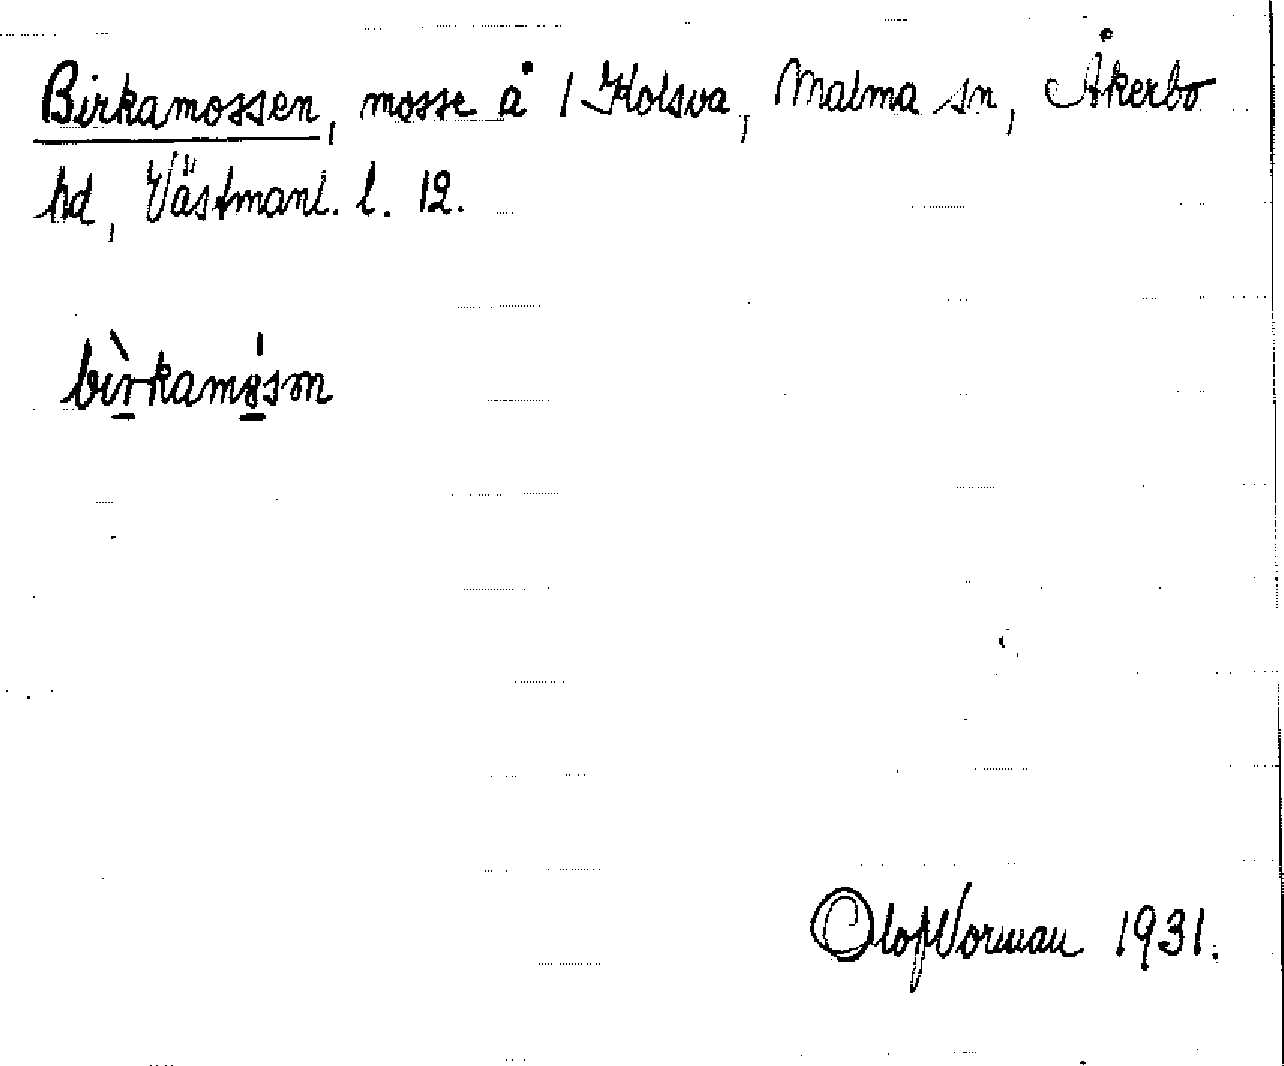 Birkamossen, mosse å 1 Kolsva, Malma sn, Åkerbo
hd, Västmanl. l. 12.
bìrkamåsɷn
Olof Norman 1931.